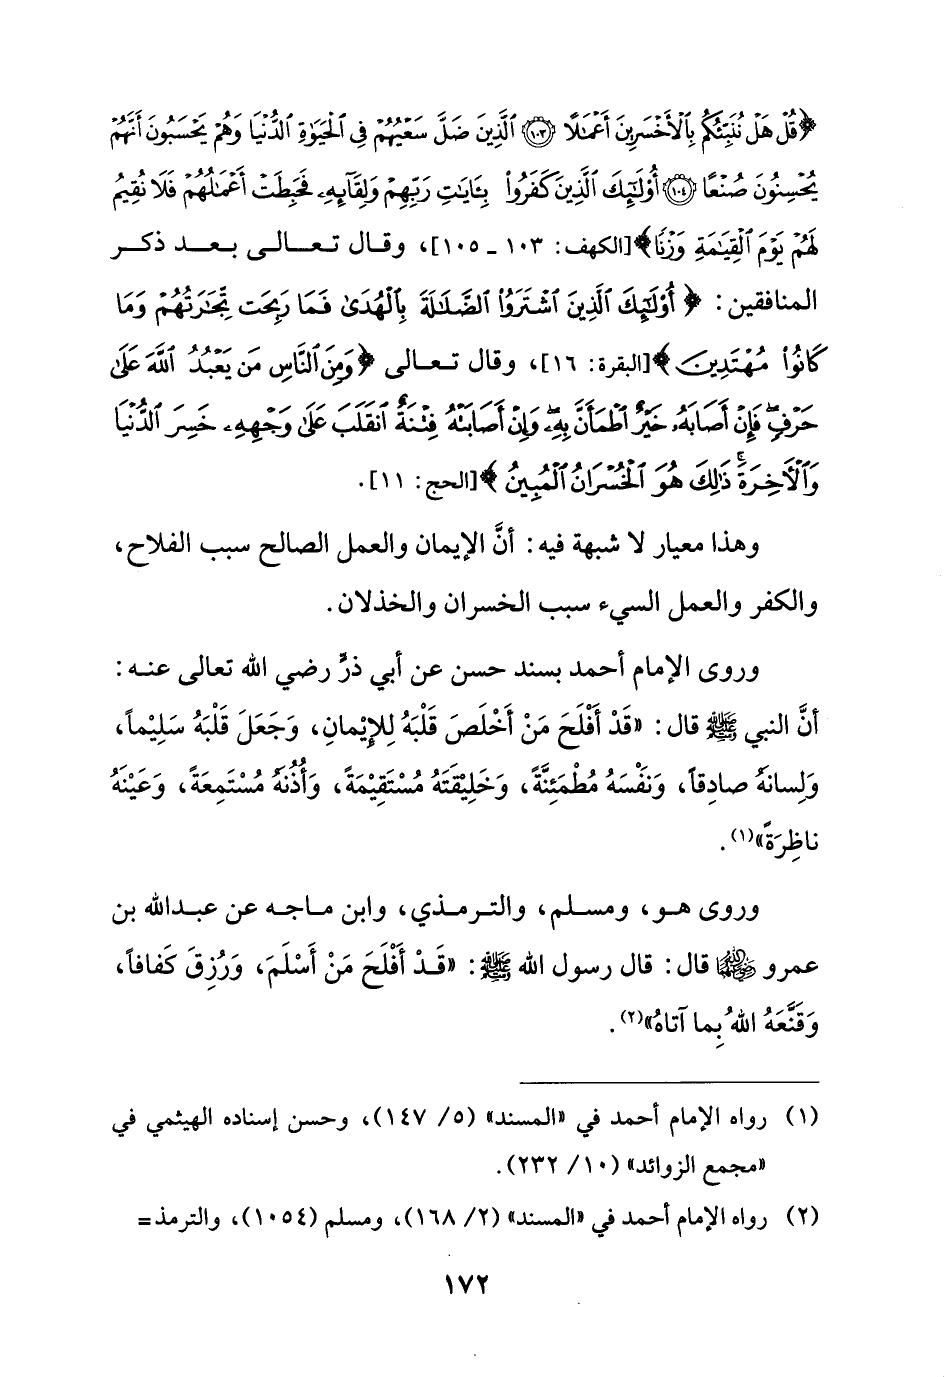 ﴿قُلْ هَلْ نُنَبِّئُكُم بِٱلْأَخْسَرِينَ أَعْمَـٰلًا ۝١٠٣ ٱلَّذِينَ ضَلَّ سَعْيُهُمْ فِى ٱلْحَيَوٰةِ ٱلدُّنْيَا وَهُمْ يَحْسَبُونَ أَنَّهُمْ
يُحْسِنُونَ صُنْعًا ۝١٠٤ أُو۟لَـٰٓئِكَ ٱلَّذِينَ كَفَرُوا۟ بِـَٔايَـٰتِ رَبِّهِمْ وَلِقَآئِهِۦ فَحَبِطَتْ أَعْمَـٰلُهُمْ فَلَا نُقِيمُ
لَهُمْ يَوْمَ ٱلْقِيَـٰمَةِ وَزْنًا﴾[الكهف: ١٠٣ ـ ١٠٥]، وقال تعالى بعد ذكر
المنافقين: ﴿أُو۟لَـٰٓئِكَ ٱلَّذِينَ ٱشْتَرَوُا۟ ٱلضَّلَـٰلَةَ بِٱلْهُدَىٰ فَمَا رَبِحَت تِّجَـٰرَتُهُمْ وَمَا
كَانُوا۟ مُهْتَدِينَ﴾[البقرة: ١٦]، وقال تعالى ﴿وَمِنَ ٱلنَّاسِ مَن يَعْبُدُ ٱللَّهَ عَلَىٰ
حَرْفٍ ۖ فَإِنْ أَصَابَهُۥ خَيْرٌ ٱطْمَأَنَّ بِهِۦ ۖ وَإِنْ أَصَابَتْهُ فِتْنَةٌ ٱنقَلَبَ عَلَىٰ وَجْهِهِۦ خَسِرَ ٱلدُّنْيَا
وَٱلْـَٔاخِرَةَ ۚ ذَٰلِكَ هُوَ ٱلْخُسْرَانُ ٱلْمُبِينُ﴾[الحج: ١١].
وهذا معيار لا شبهة فيه: أنَّ الإيمان والعمل الصالح سبب الفلاح،
والكفر والعمل السيء سبب الخسران والخذلان.
وروى الإمام أحمد بسند حسن عن أبي ذرٍّ رضي الله تعالى عنه:
أنَّ النبي ﷺ قال: «قَدْ أَفْلَحَ مَنْ أَخْلَصَ قَلْبَهُ لِلإِيْمانِ، وَجَعَلَ قَلْبَهُ سَلِيْماً،
وَلِسانَهُ صادِقاً، وَنَفْسَهُ مُطْمَئِنَّةً، وَخَلِيْقَتَهُ مُسْتَقِيْمَةً، وَأُذُنَهُ مُسْتَمِعَةً، وَعَيْنَهُ
ناظِرَةً»(١).
وروى هو، ومسلم، والترمذي، وابن ماجه عن عبدالله بن
عمرو رضي الله عنهما قال: قال رسول الله ﷺ: «قَدْ أَفْلَحَ مَنْ أَسْلَمَ، وَرُزِقَ كَفافاً،
وَقَنَّعَهُ اللهُ بِما آتاهُ»(٢).
(١) رواه الإمام أحمد في «المسند» (٥/ ١٤٧)، وحسن إسناده الهيثمي في
«مجمع الزوائد» (١٠/ ٢٣٢).
(٢) رواه الإمام أحمد في «المسند» (٢/ ١٦٨)، ومسلم (١٠٥٤)، والترمذ=
١٧٢